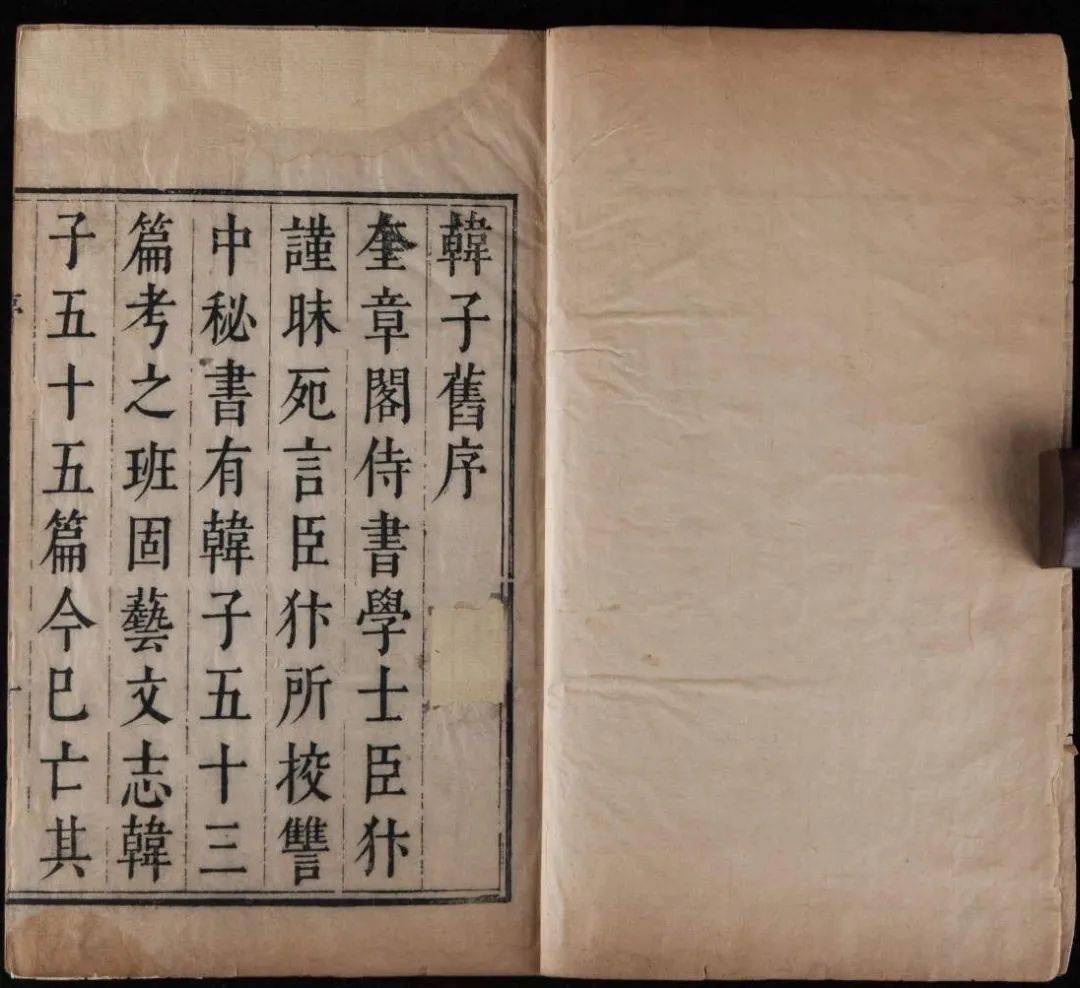 韓子舊序
奎章閣侍書學士臣犿
謹昧死言臣犿所挍讐
中秘書有韓子五十三
篇考之班固藝文志韓
子五十五篇今巳亡其